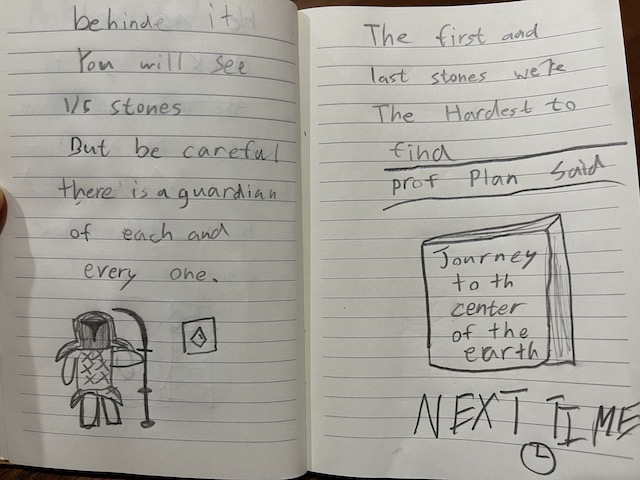 behinde it
You will see
1/5 stones
But be careful
there is a guardian
of each and
every one.
The first and
last stones we're
The Hardest to
find
prof Plan Said
Journey
to th
center
of the
earth
NEXT TIME